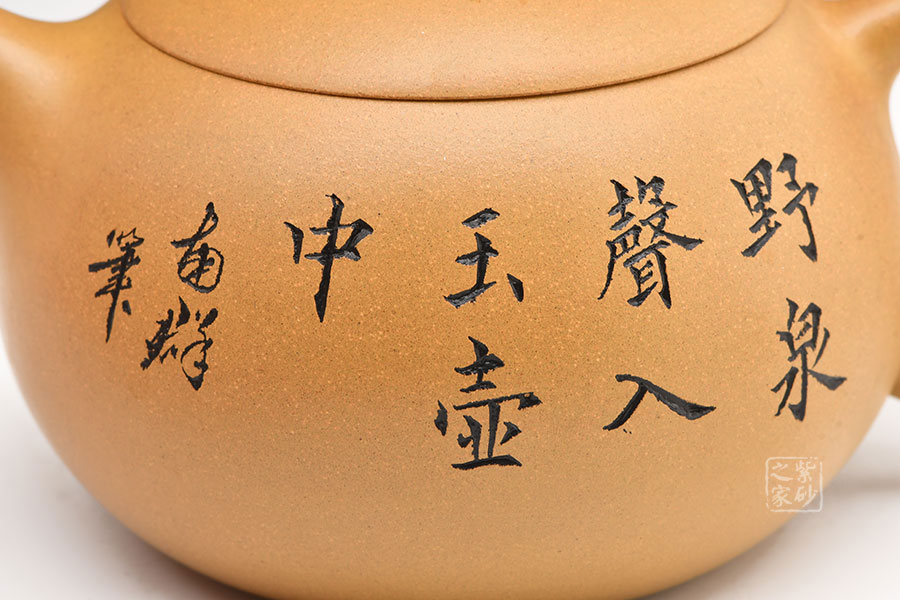 野泉
聲入
玉壺
中
南群
筆
紫砂
之家